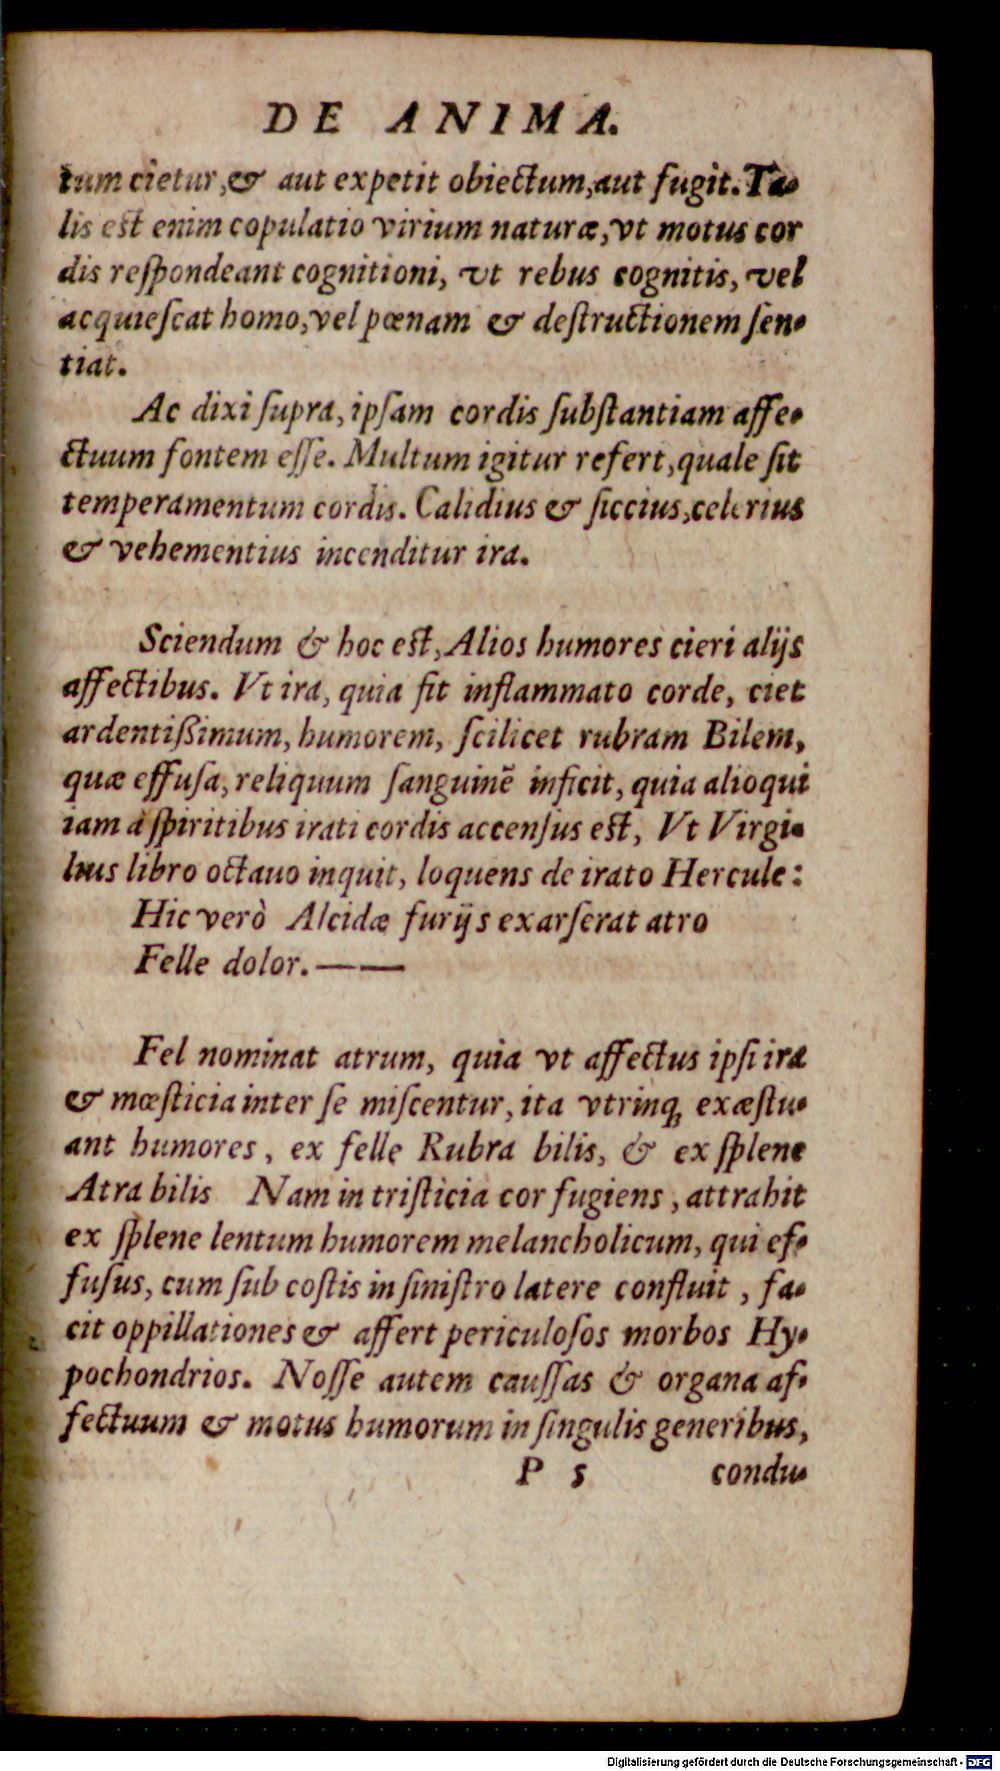 DE ANIMA.
tum cietur, & aut expetit obiectum, aut fugit. Ta-
lis est enim copulatio virium naturæ, vt motus cor
dis respondeant cognitioni, vt rebus cognitis, vel
acquiescat homo, vel pœnam & destructionem sen-
tiat.
Ac dixi supra, ipsam cordis substantiam affe-
ctuum fontem esse. Multum igitur refert, quale sit
temperamentum cordis. Calidius & siccius, celerius
& vehementius incenditur ira.
Sciendum & hoc est, Alios humores cieri alijs
affectibus. Vt ira, quia fit inflammato corde, ciet
ardentißimum, humorem, scilicet rubram Bilem,
quæ effusa, reliquum sanguinē inficit, quia alioqui
iam à spiritibus irati cordis accensus est, Vt Virgi-
lius libro octauo inquit, loquens de irato Hercule:
Hic verò Alcidæ furijs exarserat atro
Felle dolor. ——
Fel nominat atrum, quia vt affectus ipsi iræ
& mœsticia inter se miscentur, ita vtrinq; exæstu-
ant humores, ex felle Rubra bilis, & ex splene
Atra bilis Nam in tristicia cor fugiens, attrahit
ex splene lentum humorem melancholicum, qui ef-
fusus, cum sub costis in sinistro latere confluit, fa-
cit oppillationes & affert periculosos morbos Hy-
pochondrios. Nosse autem caussas & organa af-
fectuum & motus humorum in singulis generibus,
P 5 condu-
Digitalisierung gefördert durch die Deutsche Forschungsgemeinschaft - DFG